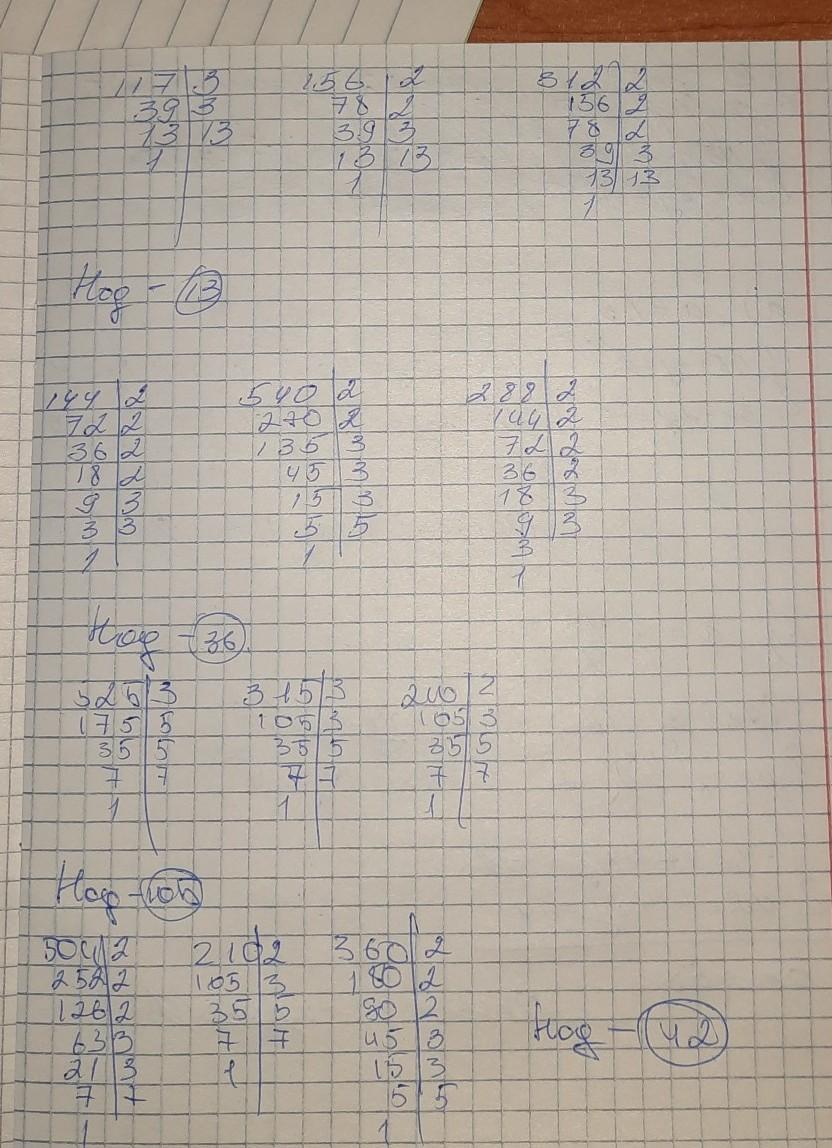 117 3 156 2 312 2
39 3 78 2 156 2
13 13 39 3 78 2
1 13 13 39 3
1 13 13
1
Нод - 13
144 2 540 2 288 2
72 2 270 2 144 2
36 2 135 3 72 2
18 2 45 3 36 2
9 3 15 3 18 3
3 3 5 5 9 3
1 1 3
1
Нод - 36
525 3 315 3 210 2
175 5 105 3 105 3
35 5 35 5 35 5
7 7 7 7 7 7
1 1 1
Нод - 105
504 2 210 2 360 2
252 2 105 3 180 2
126 2 35 5 90 2
63 3 7 7 45 3
21 3 1 15 3
7 7 5 5
1 1
Нод - 42